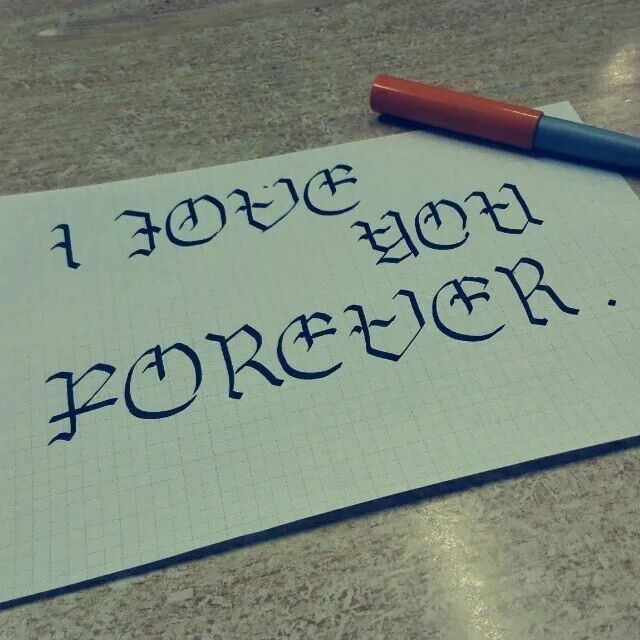 I LOVE
YOU
FOREVER.